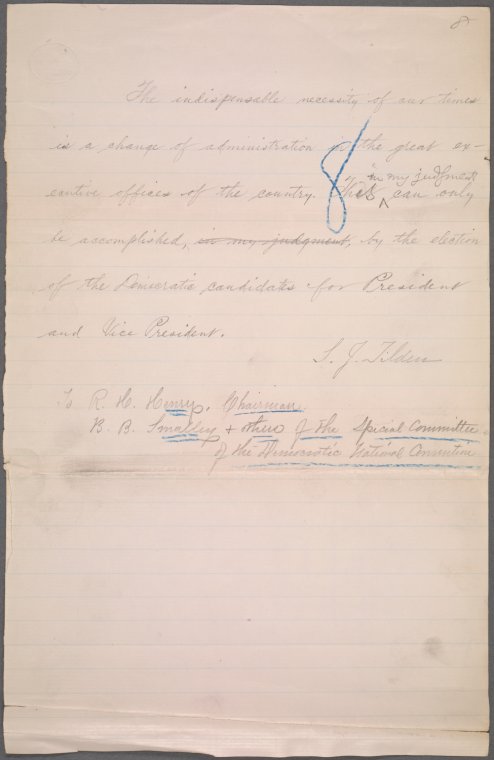 8
The indispensable necessity of our times
is a change of administration in the great ex-
in my judgment
ecutive offices of the country. This ^ can only
be accomplished, in my judgment, by the election
of the Democratic candidates for President
and Vice President.
S. J. Tilden
To R. H. Henry, Chairman
B. B. Smalley + others of the Special Committee
of the Democratic National Convention
8